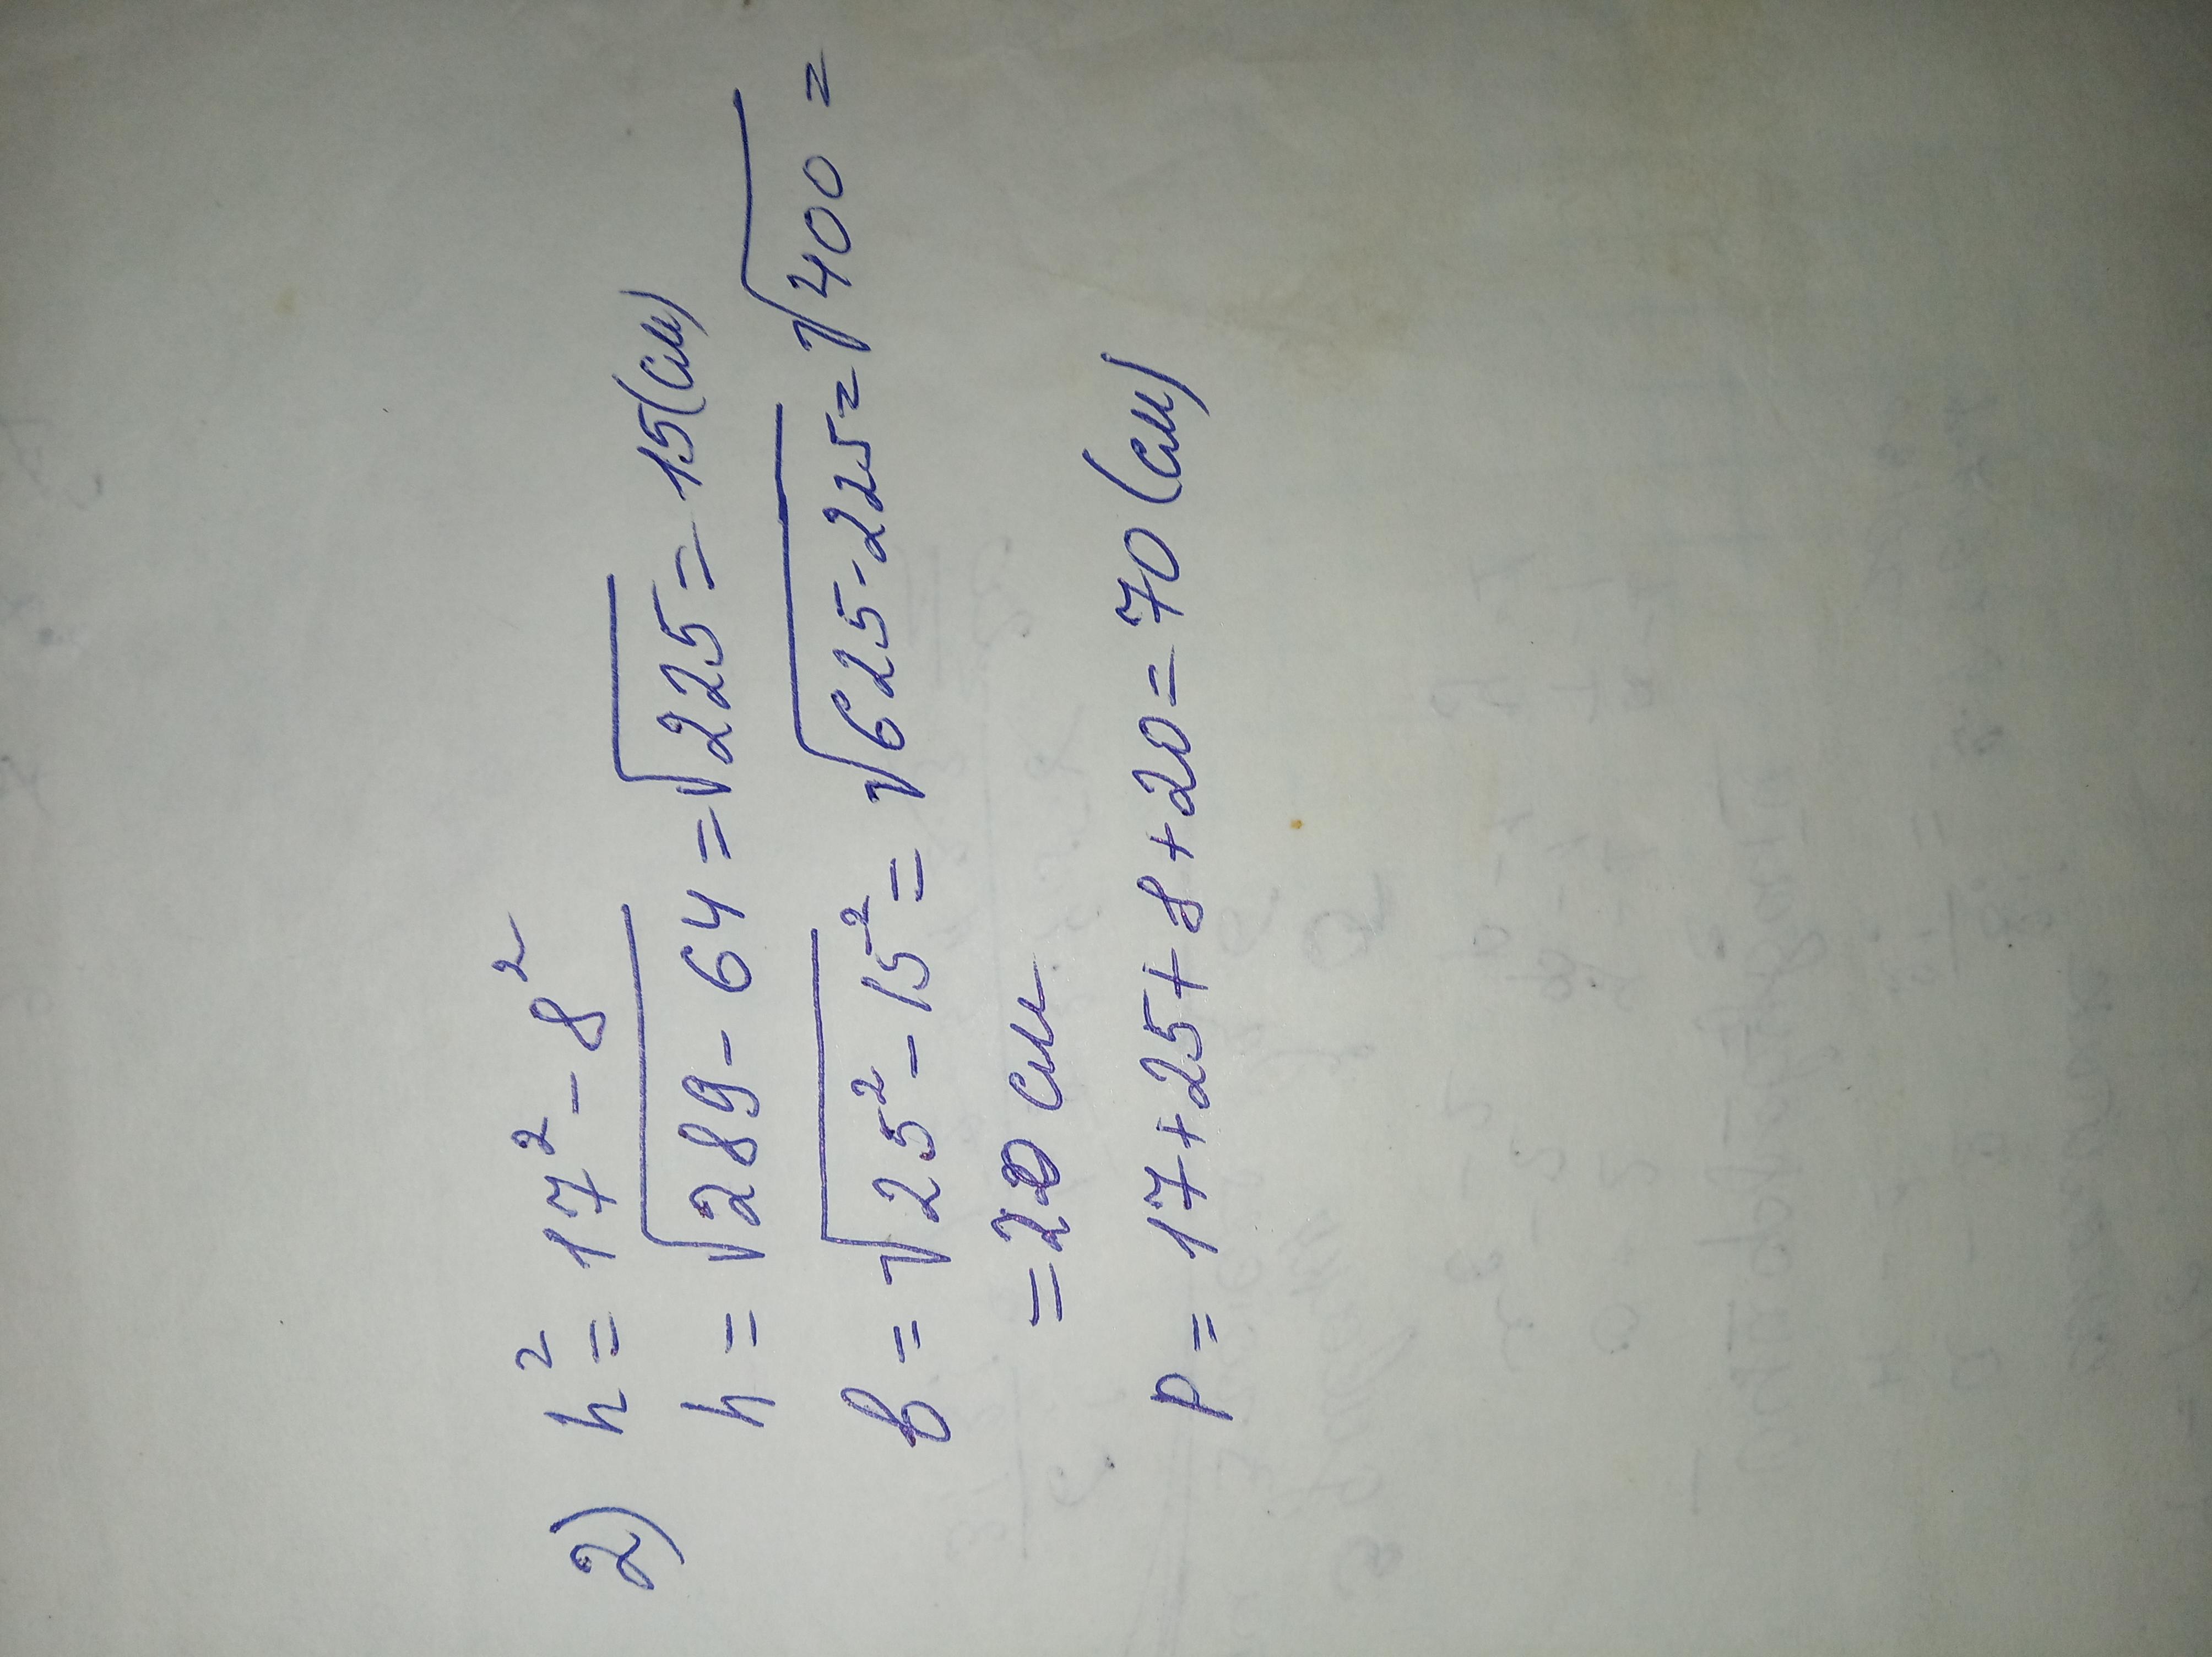 2) h² = 17² - 8²
h = √289 - 64 = √225 = 15(см)
в = √25² - 15² = √625 - 225 = √400 =
= 20 см
P = 17 + 25 + 8 + 20 = 70 (см)